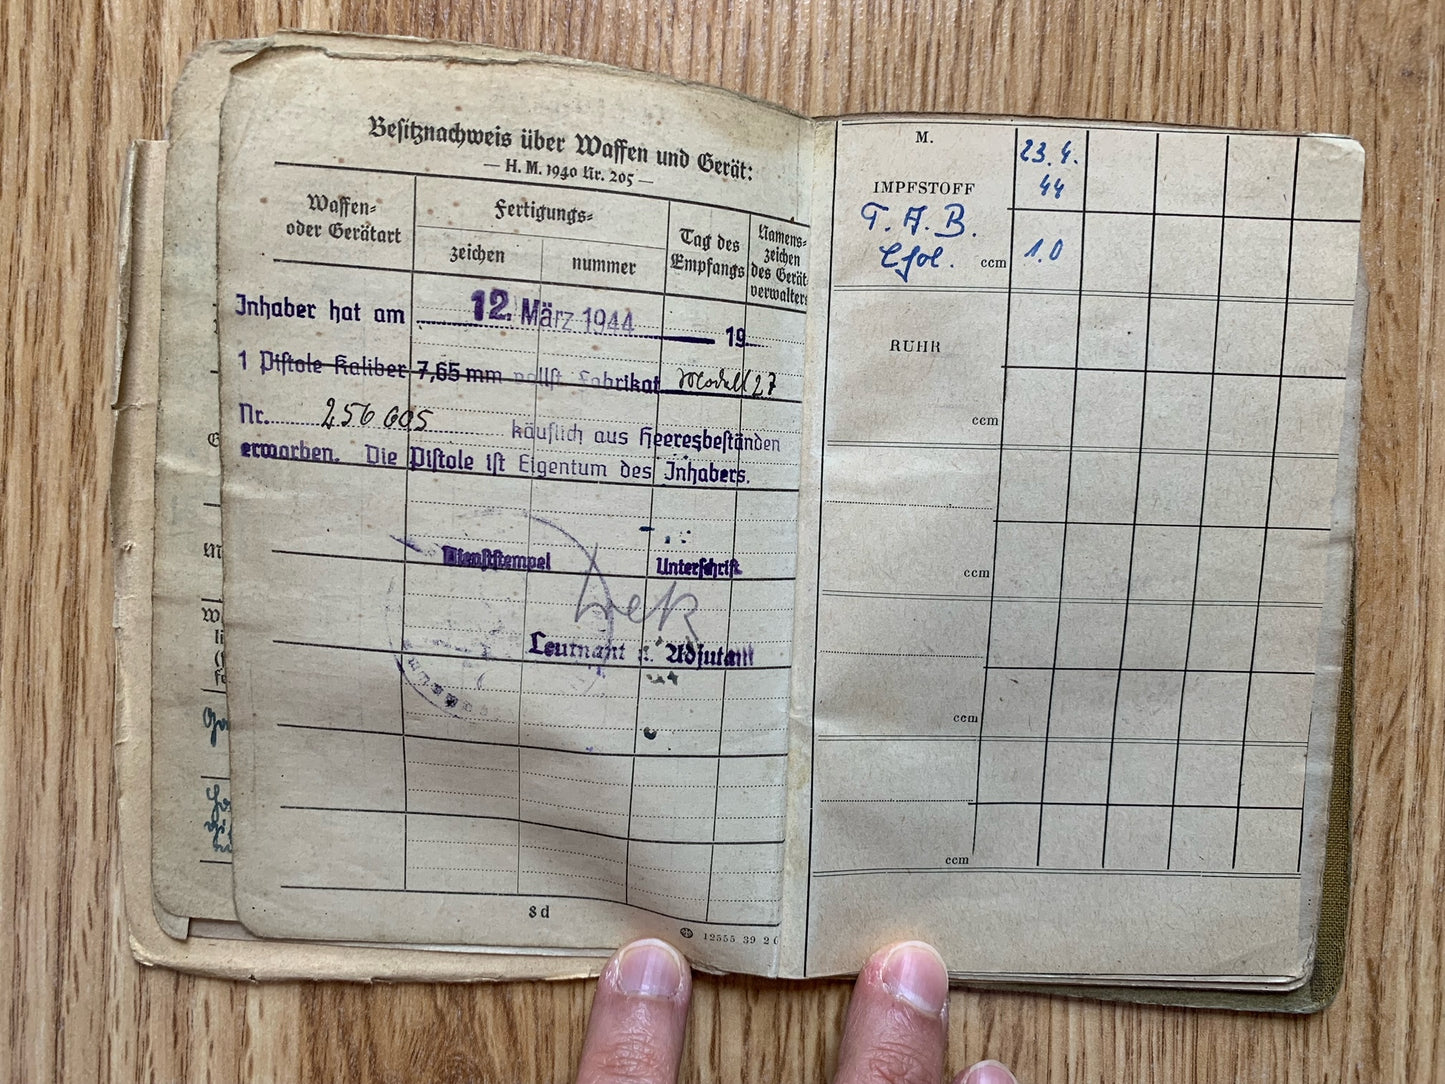 Besitznachweis über Waffen und Gerät:
— H. M. 1940 Nr. 205 —
Waffen- oder Gerätart
Fertigungs-
zeichen
nummer
Tag des Empfangs
Namens- zeichen des Gerät verwalters
Inhaber hat am 12. März 1944 19
1 Pistole Kaliber 7,65 mm Fabrikat Modell 27
Nr. 256605 käuflich aus Heeresbeständen
erworben. Die Pistole ist Eigentum des Inhabers.
Dienststempel Unterschrift
Leutnant u. Adjutant
8 d
12555 39 2
M.
23. 4.
44
IMPFSTOFF
T. A. B.
ccm 1.0
RUHR
ccm
ccm
ccm
ccm